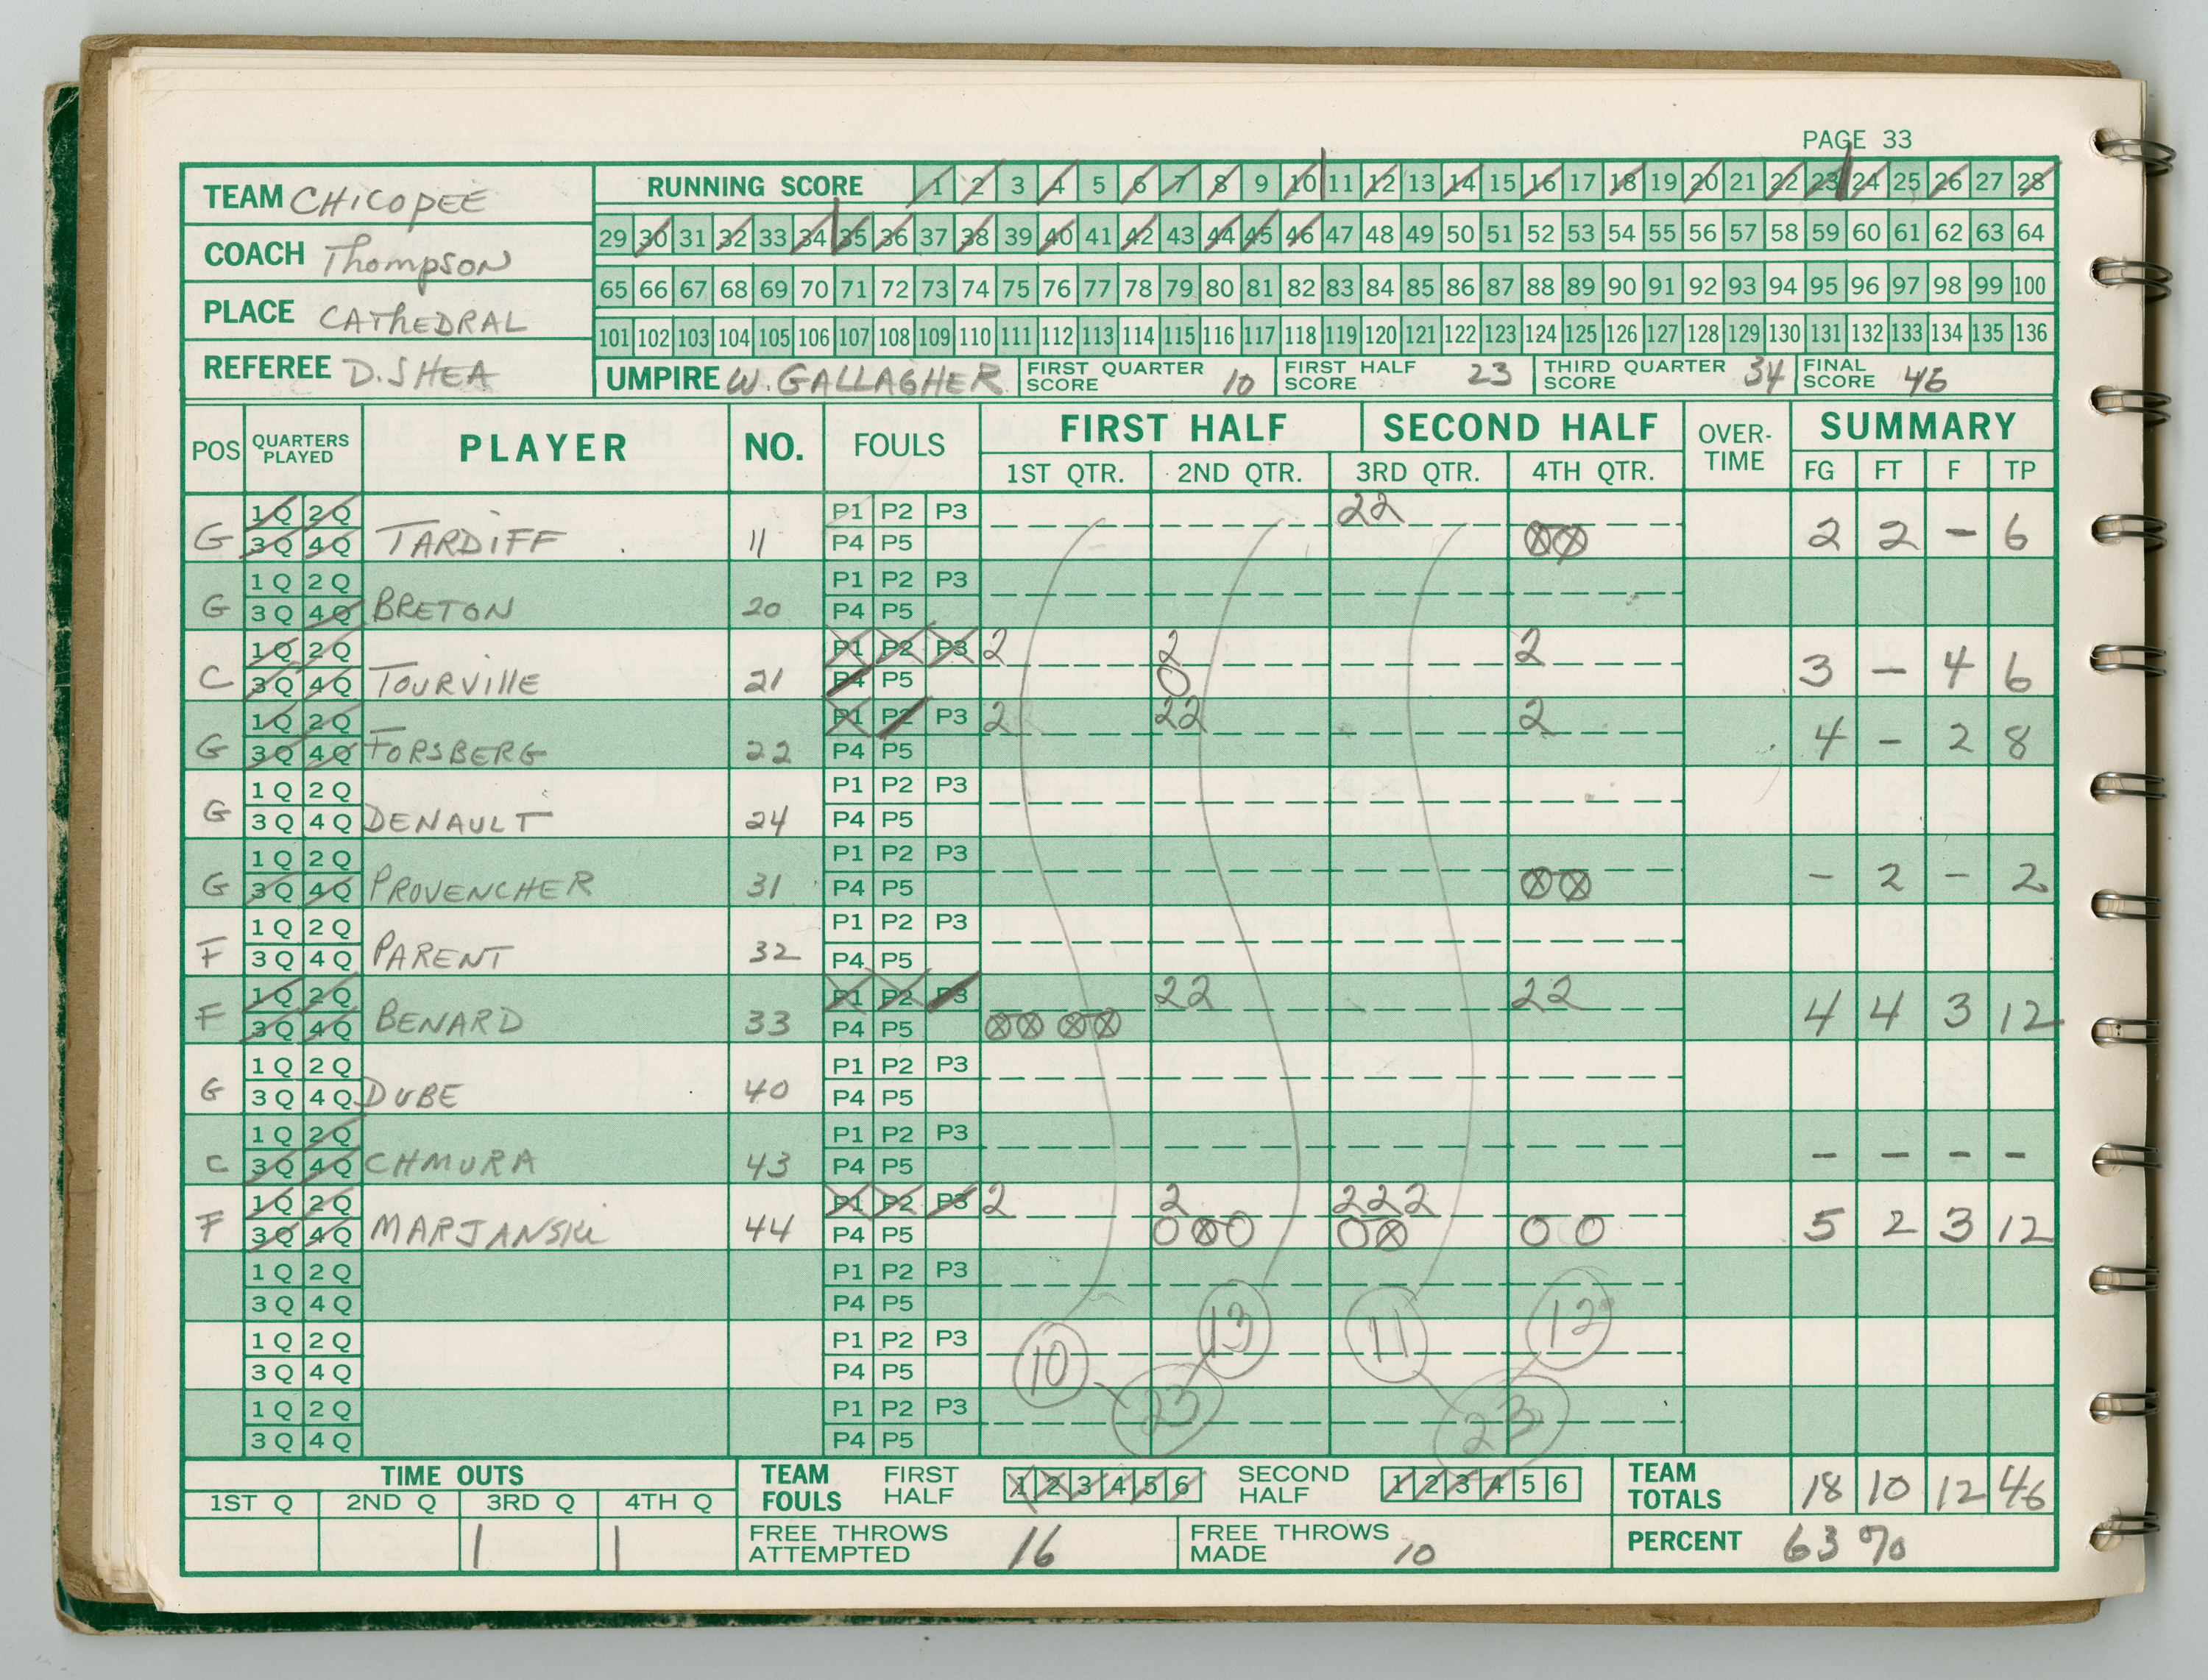 PAGE 33
TEAM CHICOPEE
COACH Thompson
PLACE CATHEDRAL
REFEREE D. SHEA
RUNNING SCORE 1 2 3 4 5 6 7 8 9 10 11 12 13 14 15 16 17 18 19 20 21 22 23 24 25 26 27 28
29 30 31 32 33 34 35 36 37 38 39 40 41 42 43 44 45 46 47 48 49 50 51 52 53 54 55 56 57 58 59 60 61 62 63 64
65 66 67 68 69 70 71 72 73 74 75 76 77 78 79 80 81 82 83 84 85 86 87 88 89 90 91 92 93 94 95 96 97 98 99 100
101 102 103 104 105 106 107 108 109 110 111 112 113 114 115 116 117 118 119 120 121 122 123 124 125 126 127 128 129 130 131 132 133 134 135 136
UMPIRE W. GALLAGHER FIRST QUARTER SCORE 10 FIRST HALF SCORE 23 THIRD QUARTER SCORE 34 FINAL SCORE 46
POS QUARTERS PLAYED PLAYER NO. FOULS FIRST HALF SECOND HALF OVER-TIME SUMMARY
1ST QTR. 2ND QTR. 3RD QTR. 4TH QTR. FG FT F TP
1Q 2Q P1 P2 P3 22
G 3Q 4Q TARDIFF 11 P4 P5 ⊗⊗ 2 2 - 6
1Q 2Q P1 P2 P3
G 3Q 4Q BRETON 20 P4 P5
1Q 2Q P1 P2 P3 2 2 2
C 3Q 4Q TOURVILLE 21 P4 P5 O 3 - 4 6
1Q 2Q P1 P2 P3 2 22 2
G 3Q 4Q FORSBERG 22 P4 P5 4 - 2 8
1Q 2Q P1 P2 P3
G 3Q 4Q DENAULT 24 P4 P5
1Q 2Q P1 P2 P3
G 3Q 4Q PROVENCHER 31 P4 P5 ⊗⊗ - 2 - 2
1Q 2Q P1 P2 P3
F 3Q 4Q PARENT 32 P4 P5
1Q 2Q P1 P2 P3 22 22
F 3Q 4Q BENARD 33 P4 P5 ⊗⊗ ⊗⊗ 4 4 3 12
1Q 2Q P1 P2 P3
G 3Q 4Q DUBE 40 P4 P5
1Q 2Q P1 P2 P3
C 3Q 4Q CHMURA 43 P4 P5 - - - -
1Q 2Q P1 P2 P3 2 2 222
F 3Q 4Q MARJANSKI 44 P4 P5 O⊗O O⊗ O O 5 2 3 12
1Q 2Q P1 P2 P3
3Q 4Q P4 P5
1Q 2Q P1 P2 P3 10 13 11 12
3Q 4Q P4 P5
1Q 2Q P1 P2 P3 23 23
3Q 4Q P4 P5
TIME OUTS TEAM FOULS FIRST HALF 1 2 3 4 5 6 SECOND HALF 1 2 3 4 5 6 TEAM TOTALS 18 10 12 46
1ST Q 2ND Q 3RD Q 4TH Q
1 1 FREE THROWS ATTEMPTED 16 FREE THROWS MADE 10 PERCENT 63%